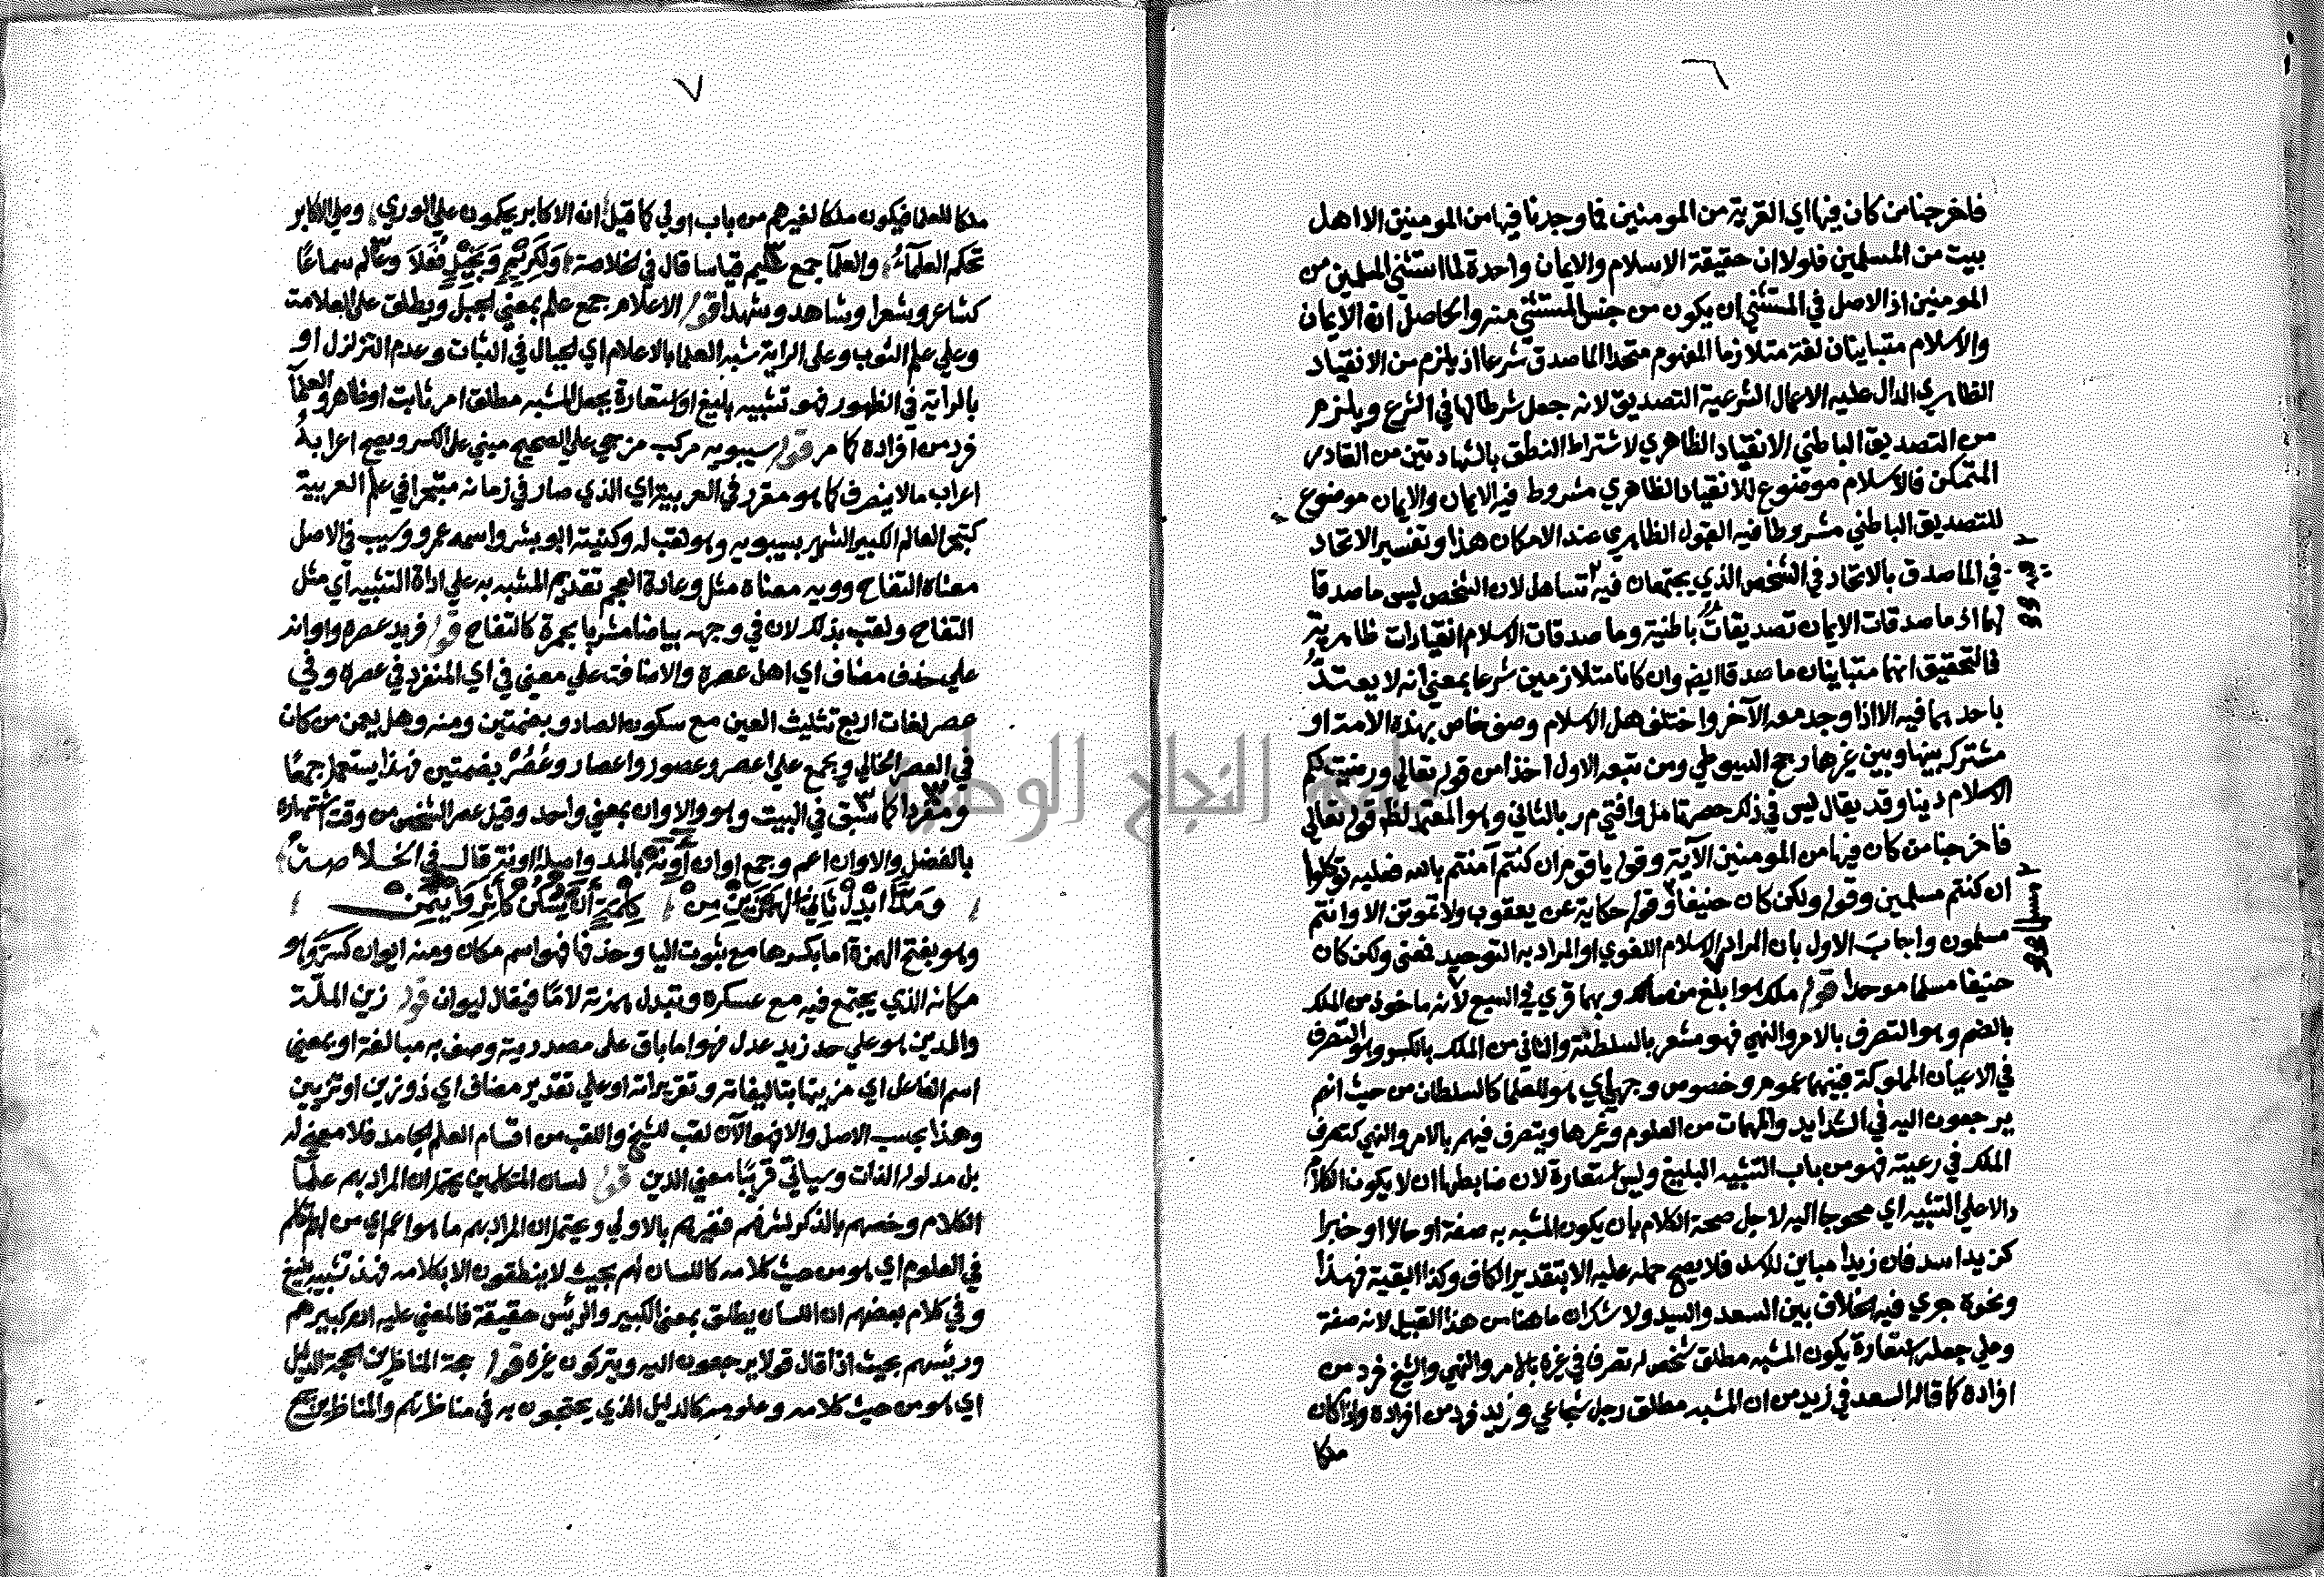 ٦
فاخرجنا من كان فيها اي القرية من المومنين فما وجدنا فيها من المومنين الا اهل
بيت من المسلمين فلولا ان حقيقة الاسلام والايمان واحدة لما استثني المسلمين من
المومنين اذ الاصل في المستثني ان يكون من جنس المستثني منه والحاصل ان الايمان
والاسلام متباينان لغة متلازما المفهوم متحدا الماصدق شرعا اذ يلزم من الانقياد
الظاهري الدال عليه الاعمال الشرعية التصديق لانه جعل شرطا لها في الشرع ويلزم
من التصديق الباطني الانقياد الظاهري لاشتراط النطق بالشهادتين من القادر
المتمكن فالاسلام موضوع للانقياد الظاهري مشروط فيه الايمان والايمان موضوع
للتصديق الباطني مشروطا فيه القول الظاهري عند الامكان هذا وتفسير الاتحاد
في الماصدق بالاتحاد في الشخص الذي يجتمعان فيه تساهل لان الشخص ليس ماصدقا
لهما اذ ماصدقات الايمان تصديقات باطنية وماصدقات الاسلام انقيادات ظاهرية
فالتحقيق انهما متباينان ماصدقا ايضا وان كانا متلازمين شرعا بمعني انه لا يعتد
باحدهما فيه الا اذا وجد معه الآخر واختلف هل الاسلام وصف خاص بهذه الامة او
مشترك بينها وبين غيرها رجح السيوطي ومن تبعه الاول اخذا من قوله تعالي ورضيت لكم
الاسلام دينا وقد يقال ليس في ذكر حصر تامل وافتي م ر بالثاني وهو المعتمد لظ قوله تعالي
فاخرجنا من كان فيها من المومنين الآية وقوله يا قوم ان كنتم آمنتم بالله فعليه توكلوا
ان كنتم مسلمين وقوله ولكن كان حنيفا وقوله حكاية عن يعقوب ولا تموتن الا وانتم
مسلمون واجاب الاول بان المراد الاسلام اللغوي او المراد به التوحيد فمعني ولكن كان
حنيفا مسلما موحدا قوله ملك هو ابلغ من مالك وبهما قري في السبع لانه ماخوذ من الملك
بالضم وهو التصرف بالامر والنهي فهو مشعر بالسلطنة والثاني من الملك بالكسر وهو التصرف
في الاعيان المملوكة فبينهما عموم وخصوص وجهي اي هو للعلما كالسلطان من حيث انهم
يرجعون اليه في الشدايد والمهمات من العلوم وغيرها ويتصرف فيهم بالامر والنهي كتصرف
الملك في رعيته فهو من باب التشبيه البليغ وليس استعارة لان ضابطها ان لا يكون الكلام
دالا علي التشبيه اي محوجا اليه لاجل صحة الكلام بان يكون المشبه به صفة او حالا او خبرا
كزيد اسد فان زيدا مباين للاسد فلا يصح حمله عليه الا بتقدير الكاف وكذا البقية فهذا
ونحوه جري فيه الخلاف بين السعد والسيد ولا شك ان ما هنا من هذا القبيل لانه صفة
وعلي جعله استعارة يكون المشبه مطلق شخص له تصرف في غيره بالامر والنهي والشيخ فرد من
افراده كما قاله السعد في زيد من ان المشبه مطلق رجل شجاعي وزيد فرد من افراده واذا كان
ملكا
٧
ملكا للعلما فيكون ملكا لغيرهم من باب اولي كما قيل ان الاكابر يحكمون علي الوري وعلي الاكابر
تحكم العلماء والعلما جمع عليم قياسا قال في الخلاصة ولكريم وبخيل فعلا وعالم سماعا
كشاعر وشعرا وشاهد وشهدا قوله الاعلام جمع علم بمعني الجبل ويطلق علي العلامة
وعلي علم الثوب وعلي الراية شبه العلما بالاعلام اي الجبال في الثبات وعدم التزلزل او
بالراية في الظهور فهو تشبيه بليغ او استعارة بجعل المشبه مطلق امر ثابت او ظاهر والعلما
فرد من افراده كما مر قوله سيبويه مركب مزجي علي الصحيح مبني علي الكسر ويصح اعرابه
اعراب ما لا ينصرف كما هو مقرر في العربية اي الذي صار في زمانه متبحرا في علم العربية
كتبحر العالم الكبير الشهير بسيبويه وهو لقب له وكنيته ابو بشر واسمه عمرو وسيب في الاصل
معناه التفاح وويه معناه مثل وعادة العجم تقديم المشبه به علي اداة التشبيه اي مثل
التفاح ولقب بذلك لان في وجهه بياضا مشربا بحمرة كالتفاح قوله فريد عصره واوانه
علي حذف مضاف اي اهل عصره والاضافة علي معني في اي المنفرد في عصره وفي
عصر لغات اربع تثليث العين مع سكون الصاد وبضمتين ومنه وهل يعمن من كان
في العصر الخالي ويجمع علي اعصر وعصور واعصار وعصر بضمتين فهذا يستعمل جمعا
ومفردا كما سبق في البيت وهو والاوان بمعني واحد وقيل عصر الشخص من وقت اشتهاره
بالفضل والاوان اعم وجمع اوان آونة بالمد واصله اأونة قال في الخلاصة
ومدا ابدل ثاني الهمزين من كلمة ان يسكن كآثر وائتمن
وهو بفتح الهمزة اما بكسرها مع ثبوت اليا وحذفها فهو اسم مكان ومنه ايوان كسري وهو
مكانه الذي يجتمع فيه مع عسكره وتبدل همزته لاما فيقال ليوان قوله زين الملة
والدين هو علي حد زيد عدل فهو اما باق علي مصدريته وصف به مبالغة او بمعني
اسم الفاعل اي مزينها بتاليفاته وتقريراته او علي تقدير مضاف اي ذو زين او تزيين
وهذا بحسب الاصل والا فهو الآن لقب للشيخ واللقب من اقسام العلم الجامد فلا معني له
بل مدلوله الذات وسياتي قريبا معني الدين قوله لسان المتكلمين يحتمل ان المراد بهم علما
الكلام وخصهم بالذكر لشرفهم فغيرهم بالاولي ويحتمل ان المراد بهم ما هو اعم اي من لهم تكلم
في العلوم اي هو من حيث كلامه كاللسان لهم بحيث لا ينطقون الا بكلامه فهذ تشبيه بليغ
وفي كلام بعضهم ان اللسان يطلق بمعني الكبير والرئيس حقيقة فالمعني عليه انه كبيرهم
ورئيسهم بحيث اذا قال قولا يرجعون اليه ويتركون غيره قوله حجة المناظرين الحجة الدليل
اي هو من حيث كلامه وعلومه كالدليل الذي يحتجون به في مناظرتهم والمناظرين جمع
جامعة النجاح الوطنية